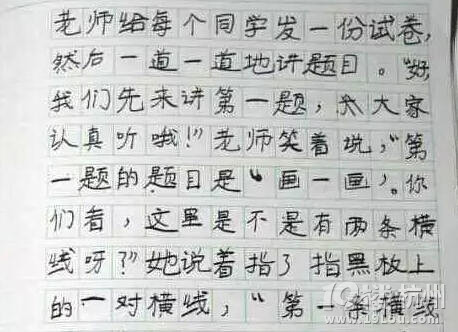 老师给每个同学发一份试卷,
然后一道一道地讲题目。“好,
我们先来讲第一题,大大家
认真听哦!”老师笑着说,“第
一题的题目是“画一画”。你
们看,这里是不是有两条横
线呀?”她说着指了指黑板上
的一对横线,“第一条横线